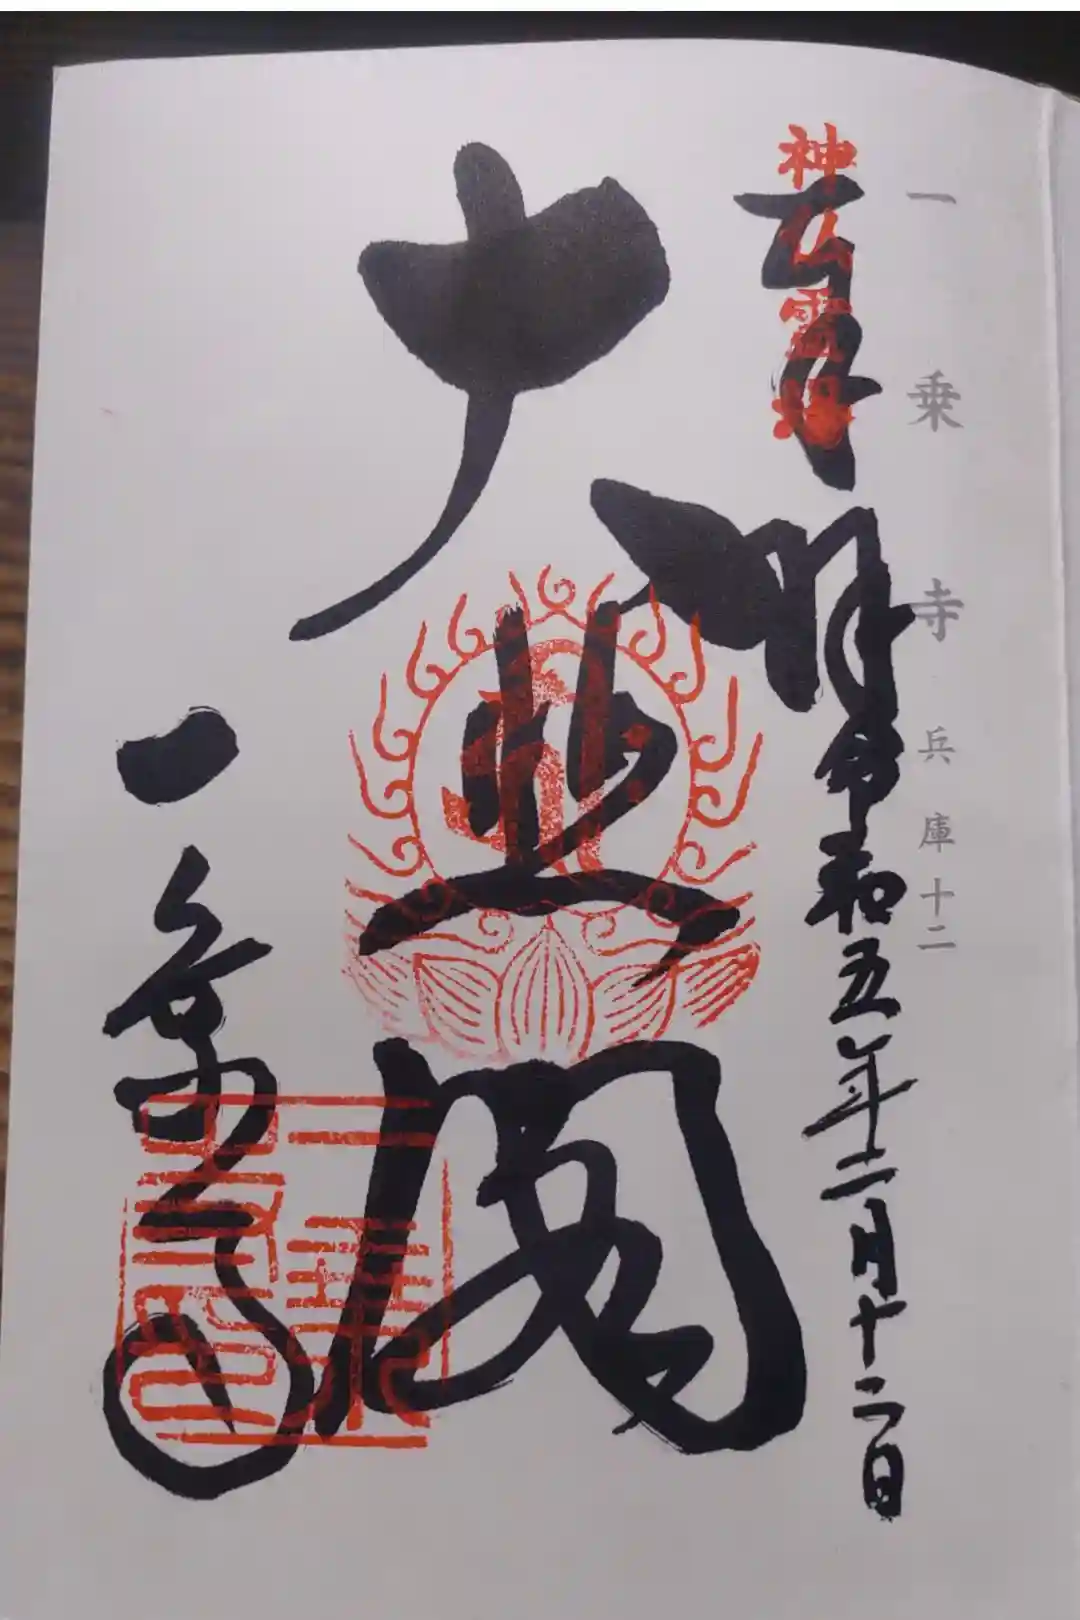 一乗寺 兵庫十二
神仏霊場
奉拝 令和五年十二月十二日
大悲閣
一乗寺